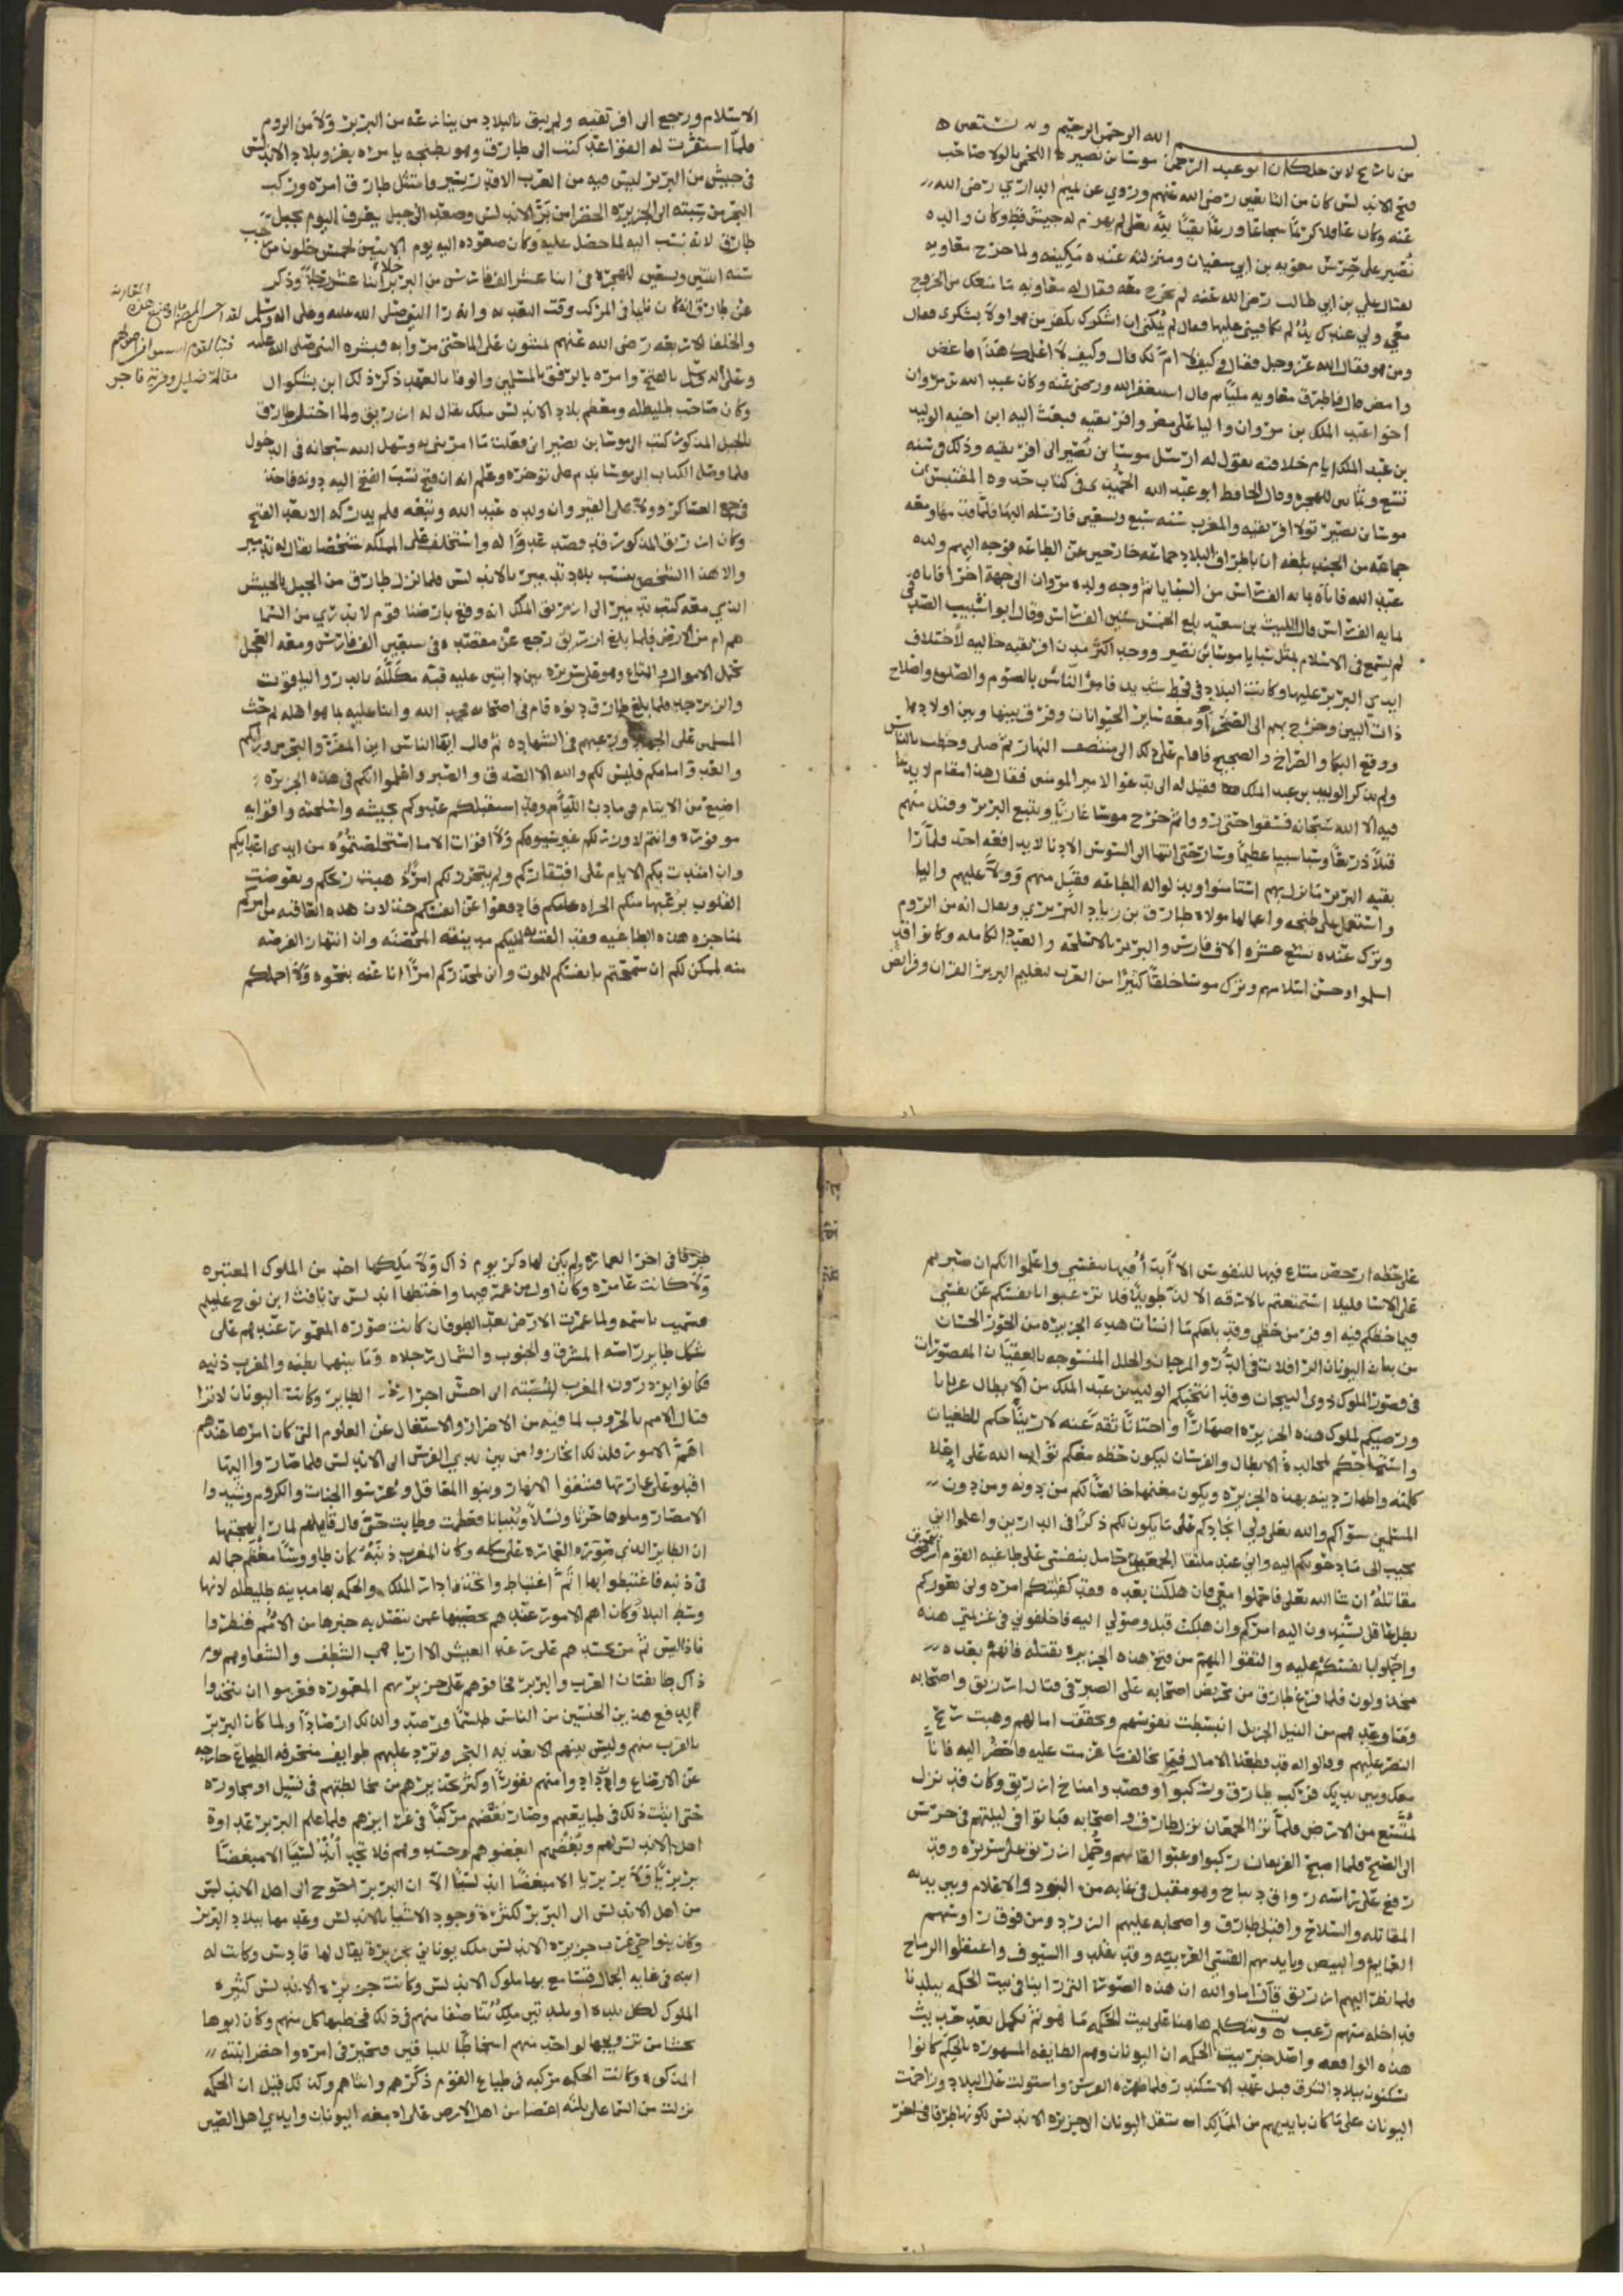 بسم الله الرحمن الرحيم وبه نستعين
من تاريخ لابن خلكان ابو عبد الرحمن موسا بن نصير اللخمي بالولا صاحب
فتح الاندلس كان من التابعين رضى الله عنهم وروي عن تميم الداري رضى الله
عنه وكان عاقلا كريما شجاعا ورعا تقيا لله تعلى لم يهزم له جيش قط وكان والده
نصير على حرس معويه بن ابي سفيان ومنزلته عنده مكينه ولما خرج معاويه
لقتال علي بن ابي طالب رضى الله عنه لم يخرج معه فقال له معاويه ما منعك من الخروج
معي ولي عندك يد لم تكافيني عليها فقال لم يمكني ان اشكرك بكفر من هو اولا بشكرى فقال
ومن هو فقال الله عز وجل فقال وكيف لا ام لك قال وكيف لا اعلمك هذا فاغض
وامض قال فاطرق معاويه مليا ثم قال استغفر الله ورضى عنه وكان عبد الله بن مروان
اخو عبد الملك بن مروان واليا على مصر وافريقيه فبعث اليه ابن اخيه الوليد
بن عبد الملك ايام خلافته يقول له ارسل موسا بن نصير الى افريقيه وذلك في سنه
تسع وثمانين للهجره وقال الحافظ ابو عبد الله الحميدى في كتاب جذوه المقتبس ان
موسا بن نصير تولا افريقيه والمغرب سنه سبع وسبعين فارسله اليها فلما قدمها ومعه
جماعه من الجند بلغه ان باطراف البلاد جماعه خارجين عن الطاعه فوجه اليهم ولده
عبد الله فاتاه بمايه الف راس من السبايا ثم وجه ولده مروان الى جهة اخرا فاتاه
بمايه الف راس قال الليث بن سعيد بلغ الخمس ستين الف راس وقال ابو شبيب الصدفي
لم يسمع في الاسلام بمثل سبايا موسا بن نصير ووجد اكثر مدن افريقيه خاليه لاختلاف
ايدي البربر عليها وكانت البلاد في قحط شديد فامر الناس بالصوم والصلوه واصلاح
ذات البين وخرج بهم الى الصحرا ومعه سائر الحيوانات وفرق بينها وبين اولادها
ووقع البكا والصراخ والضجيج فاقام على ذلك الى منتصف النهار ثم صلى وخطب بالناس
ولم يذكر الوليد بن عبد الملك فقيل له الى تدعو الامير المومنين فقال هذا مقام لا يدعا
فيه الا الله سبحانه فسقوا حتى رووا ثم خرج موسا غازيا وتتبع البربر وقتل منهم
قتلا ذريعا وسبا سبيا عظيما وسار حتى انتها الى السوس الادنا لا يدافعه احد فلما را
بقيه البربر ما نزل بهم استامنوا وبذلوا له الطاعه فقبل منهم وولا عليهم واليا
واستعمل على طنجه واعمالها مولاه طارق بن زياد البربري ويقال انه من الروم
وترك عنده تسع عشره الاف فارس والبربر بالاسلحه والعدد الكامله وكانوا قد
اسلموا وحسن اسلامهم وترك موسا خلقا كثيرا من العرب لتعليم البربر القران وفرايض
الاسلام ورجع الى افريقيه ولم يبق بالبلاد من ينازعه من البربر ولا من الروم
فلما استقرت له القواعد كتب الى طارق وهو بطنجه يامره بغزو بلاد الاندلس
في جيش من البربر ليس فيه من العرب الا قدر يسير فامتثل طارق امره وركب
البحر من سبته الى الجزيره الخضرا من بر الاندلس وصعد الى جبل يعرف اليوم بجبل
طارق لانه نسب اليه لما حصل عليه وكان صعوده اليه يوم الاثنين لخمس خلون من رجب
سنه اثنتين وتسعين للهجره في اثنا عشر الف فارس من البربر الا اثنا عشر رجلا وذكر
عن طارق انه كان نايما في المركب وقت التعديه وانه را النبي صلى الله عليه وعلى اله وسلم
والخلفا الاربعه رضى الله عنهم يمشون على الما حتى مروا به فبشره النبي صلى الله عليه
وعلى اله وسلم بالفتح وامره بالرفق بالمسلمين والوفا بالعهد ذكر ذلك ابن بشكوال
وكان صاحب طليطله ومعظم بلاد الاندلس ملك يقال له ارزيق ولما احتل طارق
بالجبل المذكور كتب الى موسا بن نصير انى فعلت ما امرتني به وسهل الله سبحانه في الدخول
فلما وصل الكتاب الى موسا ندم على تاخره وعلم انه ان فتح نسب الفتح اليه دونه فاخذ
في جمع العساكر وولا على القيروان ولده عبد الله وتبعه فلم يدركه الا بعد الفتح
وكان ارزيق المذكور قد قصد عدوا له واستخلف على المملكه شخصا يقال له تدمير
والا هذا الشخص ينسب بلاد تدمير بالاندلس فلما نزل طارق من الجبل بالجيش
الذي معه كتب تدمير الى ارزيق الملك انه وقع بارضنا قوم لا ندري من السما
هم ام من الارض فلما بلغ ارزيق رجع عن مقصده في سبعين الف فارس ومعه العجل
تحمل الاموال والمتاع وهو على سريره بين دابتين عليه قبه مكلله بالدر والياقوت
والزبرجد فلما بلغ طارق دنوه قام في اصحابه فحمد الله واثنا عليه بما هو اهله ثم حث
المسلمين على الجهاد ورغبهم في الشهاده ثم قال ايها الناس اين المفر والبحر من ورائكم
والعدو امامكم فليس لكم والله الا الصدق والصبر واعلموا انكم في هذه الجزيره
اضيع من الايتام في مادب الليام وقد استقبلكم عدوكم بجيشه واسلحته واقواته
موفوره وانتم لا وزر لكم غير سيوفكم ولا اقوات الا ما استخلصتموه من ايدى اعدايكم
وان امتدت بكم الايام على افتقاركم ولم تنجزوا لكم امرا ذهبت ريحكم وتعوضت
القلوب برعبها منكم الجراه عليكم فادفعوا عن انفسكم خذلان هذه العاقبه من امركم
بمناجزه هذه الطاغيه فقد القته اليكم مدينته المحصنه وان انتهاز الفرصه
منه لممكن لكم ان سمحتم بانفسكم للموت واني لم احذركم امرا انا عنه بنجوه ولا احملكم
على خطه ارخص متاع فيها للنفوس الا ابدا فيها بنفسي واعلموا انكم ان صبرتم
على الاشق قليلا استمتعتم بالارفه الالذ طويلا فلا ترغبوا بانفسكم عن نفسي
فيما حظكم فيه اوفر من حظي وقد بلغكم ما انشات هذه الجزيره من الحور الحسان
من بنات اليونان الرافلات في الدر والمرجان والحلل المنسوجه بالعقيان المقصورات
في قصور الملوك ذوى التيجان وقد انتخبكم الوليد بن عبد الملك من الابطال عربانا
ورضيكم لملوك هذه الجزيره اصهارا واختانا ثقه عنه لارتياحكم للطعان
واستماحكم لمجالده الابطال والفرسان ليكون حظه معكم ثواب الله على اعلا
كلمته واظهار دينه بهذه الجزيره ويكون مغنمها خالصا لكم من دونه ومن دون
المسلمين سواكم والله تعلى ولي انجادكم على ما يكون لكم ذكرا في الدارين واعلموا اني
مجيب الى ما دعوتكم اليه واني عند ملتقا الجمعين حامل بنفسي على طاغيه القوم ارزيق
مقاتله ان شا الله تعلى فاحملوا معي فان هلكت بعده فقد كفيتكم امره ولن يعوزكم
بطل عاقل تسندون اليه امركم وان هلكت قبل وصولي اليه فاخلفوني في عزيمتي هذه
واحملوا بانفسكم عليه واكتفوا المهم من فتح هذه الجزيره بقتله فانهم بعده
مخذولون فلما فرغ طارق من تحريض اصحابه على الصبر في قتال ارزيق واصحابه
وما وعدهم من النيل الجزيل انبسطت نفوسهم وتحققت امالهم وهبت ريح
النصر عليهم وقالوا له قد قطعنا الامال فيما يخالف ما عزمت عليه فاحضر اليه فاننا
معك وبين يديك فركب طارق وركبوا وقصد وامناخ ارزيق وكان قد نزل
بمتسع من الارض فلما تراا الجمعان نزل طارق واصحابه فباتوا في ليلتهم في حرس
الى الصبح فلما اصبح الفريقان ركبوا وعبوا كتايبهم وحمل ارزيق على سريره وقد
رفع على راسه رواق ديباج وهو مقبل في غابه من البنود والاعلام وبين يديه
المقاتله والسلاح واقبل طارق واصحابه عليهم الزرد ومن فوق روسهم
العمايم البيض وبايديهم القسي العربيه وقد تقلدوا السيوف واعتقلوا الرماح
فلما نظر اليهم ارزيق قال اما والله ان هذه الصور التي راينا في بيت الحكمه ببلدنا
قد اخله منهم رعب ونتكلم هاهنا على بيت الحكمه ما هو ثم نكمل بعد حديث
هذه الواقعه واصل خبر بيت الحكمه ان اليونان وهم الطايفه المشهوره بالحكم كانوا
يسكنون ببلاد الشرق قبل عهد الاسكندر فلما ظهره الفرس واستولت على البلاد وزاحمت
اليونان على ما كان بايديهم من الممالك انتقل اليونان الى جزيره الاندلس لكونها طرفا في اخر
طرفا في اخر العماره ولم يكن لها ذكر يوم ذاك ولا ملكها احد من الملوك المعتبره
ولا كانت عامره وكان اول من عمر فيها واختطها اندلس بن يافث ابن نوح عليلم
فسميت باسمه ولما عمرت الارض بعد الطوفان كانت صوره المعمور عندهم على
شكل طاير راسه المشرق والجنوب والشمال رجلاه وما بينهما بطنه والمغرب ذنبه
فكانوا يزدرون المغرب لنسبته الى اخس اجزا الطاير وكانت اليونان لا ترا
قتال الامم بالحروب لما فيه من الاضرار والاشتغال عن العلوم التي كان امرها عندهم
اهم الامور فلذلك انحازوا من بين يدي الفرس الى الاندلس فلما صاروا اليها
اقبلوا على عمارتها فشققوا الانهار وبنوا المعاقل وغرسوا الجنات والكروم وشيدوا
الامصار وملوها حرثا ونسلا وبنيانا فعظمت وطابت حتى قال قايلهم لما را بهجتها
ان الطاير الذي صوره العماره على شكله وكان المغرب ذنبه كان طاووسا معظم جماله
في ذنبه فاغتبطوا بها اتم اغتباط واتخذوا دار الملك والحكمه بها مدينه طليطله لانها
وسط البلاد وكان اهم الامور عندهم تحصينها عمن يتصل به خبرها من الامم فنظروا
فاذا ليس ثم من يحسدهم على رغد العيش الا ارباب الشظف والشقا وهم يوم
ذاك طايفتان العرب والبربر فخافوهم على جزيرتهم المعموره فعزموا ان يتخذوا
لدفع هذين الجنسين من الناس طلسما فرصدوا لذلك ارصادا ولما كان البربر
بالقرب منهم وليس بينهم الا تعديه البحر وترد عليهم طوايف منحرفه الطباع خارجه
عن الاوضاع وازدادوا منهم نفورا وكثر تحذيرهم من مخالطتهم في نسل او مجاوره
حتى اثبت ذلك في طبايعهم وصار بغضهم مركبا في غرايزهم فلما علم البربر عداوة
اهل الاندلس لهم وبغضهم ابغضوهم وحسدوهم فلا تجد اندلسيا الا مبغضا
بربريا ولا بربريا الا مبغضا اندلسيا الا ان البربر احوج الى اهل الاندلس
من اهل الاندلس الى البربر لكثرة وجود الاشيا بالاندلس وعدمها ببلاد البربر
وكان بنواحي غرب جزيره الاندلس ملك يوناني بجزيرة يقال لها قادس وكانت له
ابنه في غايه الجمال فتسامع بها ملوك الاندلس وكانت جزيره الاندلس كثيره
الملوك لكل بلده او بلدتين ملك تناصفا منهم في ذلك فخطبها كل منهم وكان ابوها
يخشا من تزويجها لواحد منهم اسخاطا للباقين فتحير في امره واحضر ابنته
المذكوره وكانت الحكمه مركبه في طباع القوم ذكرهم وانثاهم وكذلك قيل ان الحكمه
نزلت من السما على ثلثه اعضا من اهل الارض على ادمغه اليونان وايدي اهل الصين